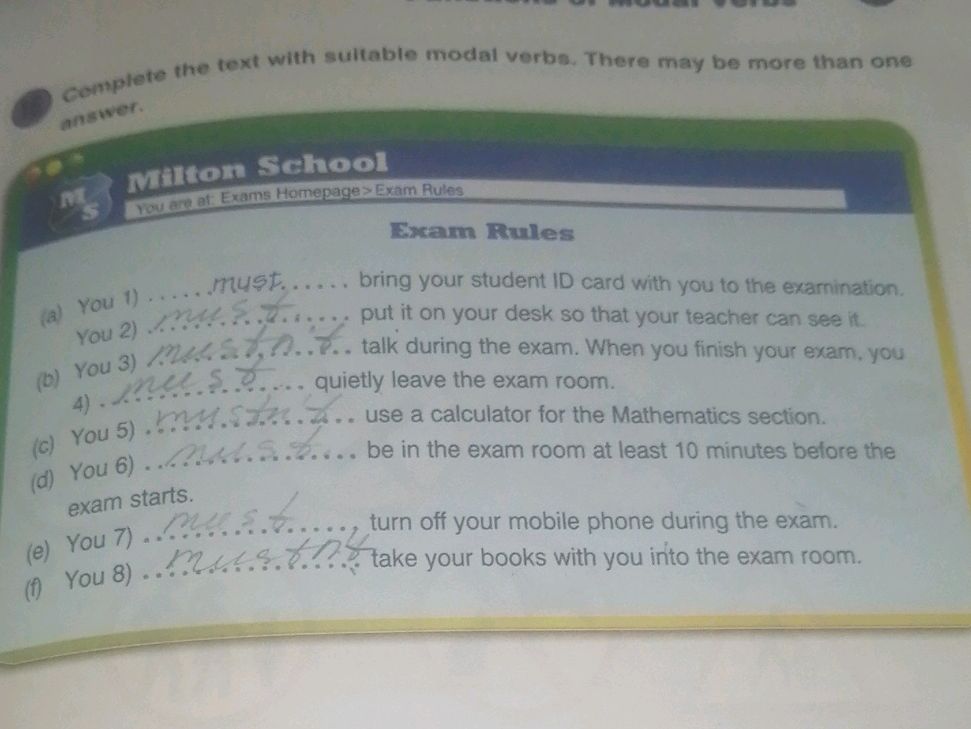 Functions of Modal Verbs
Complete the text with suitable modal verbs. There may be more than one
answer.
MS
Milton School
You are at: Exams Homepage > Exam Rules
Exam Rules
(a) You 1) ......must...... bring your student ID card with you to the examination.
You 2) must put it on your desk so that your teacher can see it.
(b) You 3) mustn't talk during the exam. When you finish your exam, you
4) must quietly leave the exam room.
(c) You 5) mustn't use a calculator for the Mathematics section.
(d) You 6) must be in the exam room at least 10 minutes before the
exam starts.
(e) You 7) must turn off your mobile phone during the exam.
(f) You 8) mustn't take your books with you into the exam room.